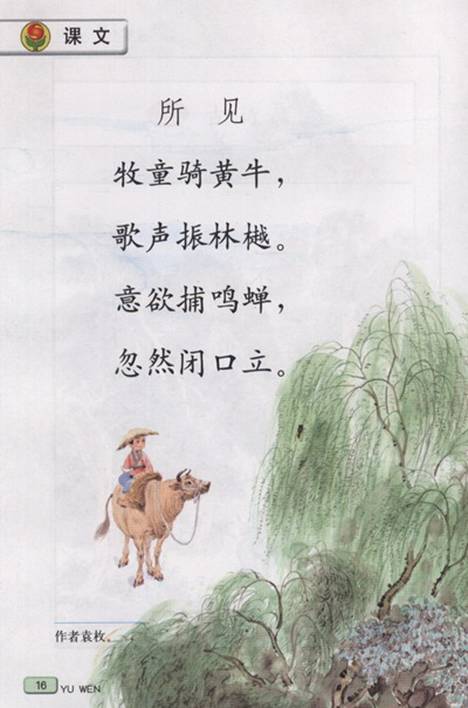 课文
所 见
牧童骑黄牛，
歌声振林樾。
意欲捕鸣蝉，
忽然闭口立。
作者袁枚。
16 YU WEN